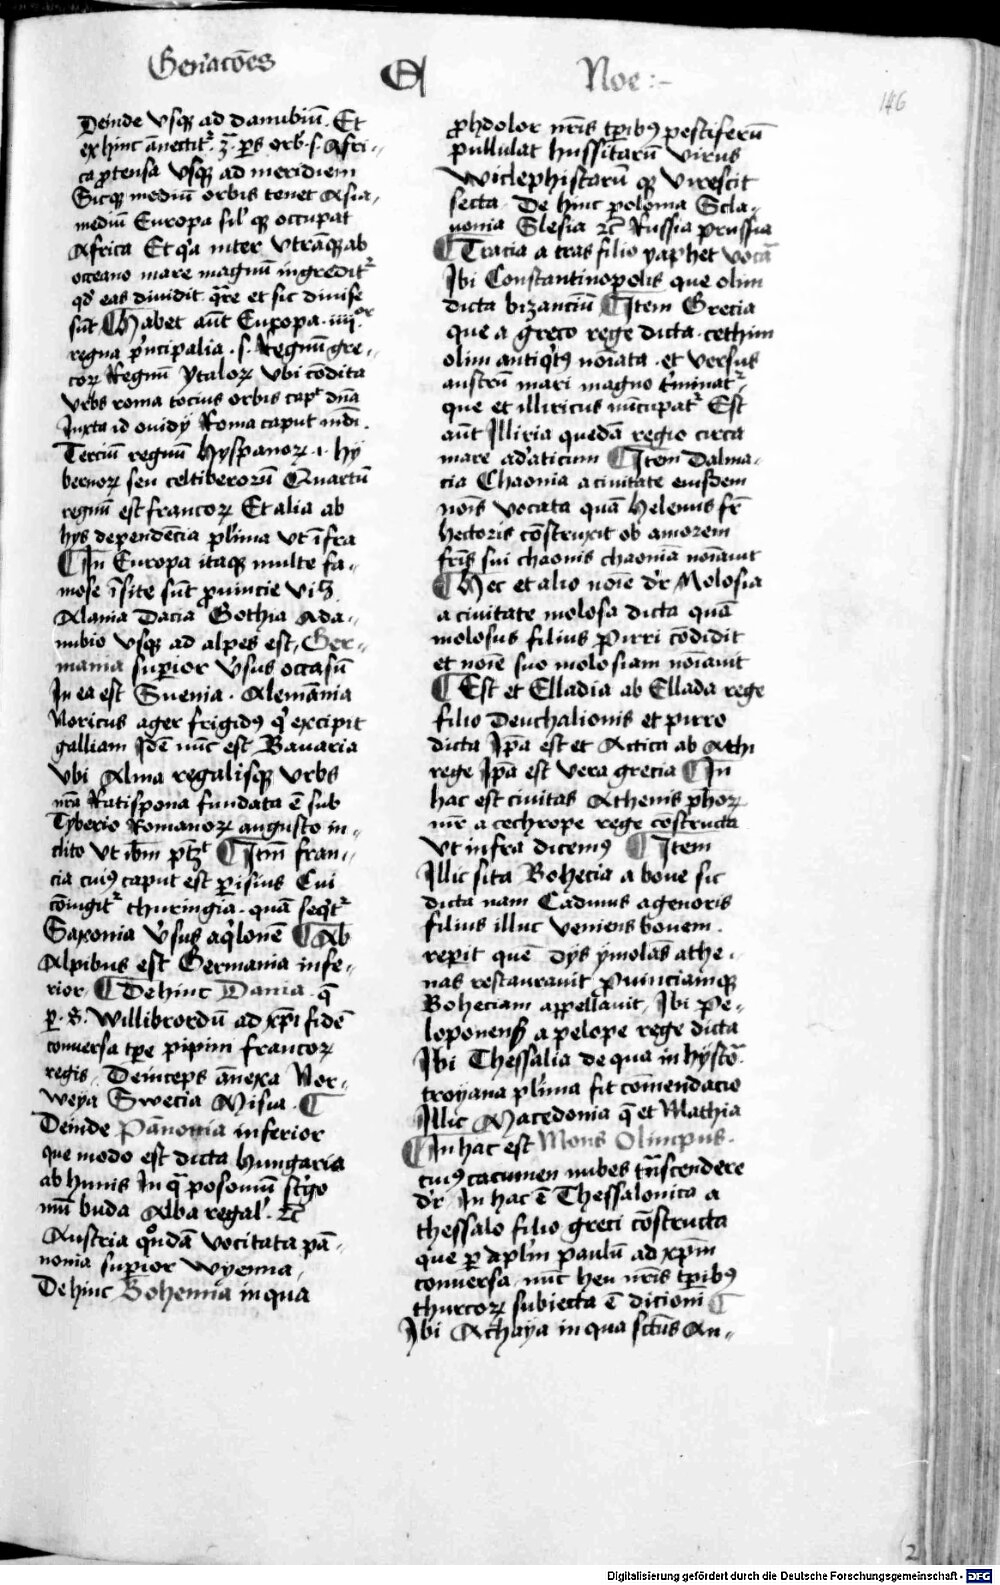 Gen'acōes
A
Noe :-
146
Deinde vsq3 ad danubiū. Et
ex hinc ānectit᷑ 3ᵃ ps orb᷒ .s. Afri-
ca ꝓtensa vsq3 ad meridiem
Sicq3 mediū orbis tenet Asia,
mediū Europa sil' q3 occupat
Africa Et q'a inter vtrāq3 ab
occeano mare magnū ingredit᷑
qd' eas diuidit q̄re et sic diuise
sūt ¶ Habet aūt Europa .iiijor
regna p'ncipalia .s. Regnū gre-
coꝝ Regnū ytaloꝝ vbi codita
vrbs roma tocius orbis capᵗ dn̄a
Juxta id ouidij Roma caput mdi.
Terciū regnū hyspanoꝝ .i. hy
bernoꝝ seu celtiberorū Quartū
regnū est francoꝝ Et alia ab
hys dependēcia pl'ima vt īfra
¶ In Europa itaq3 multe fa-
mose īsite sūt ꝓuincie vil3
Alania Dacia Gothia A da-
nubio vsq3 ad alpes est, Ger-
mania supior v'sus occasū
In ea est Sueuia . Alemānia
Noricus ager frigid9 q' excipit
galliam Idē nūc est Bauaria
vbi Alma regalisq3 vrbs
nr̄a Ratispona fundata ē sub
Tyberio Romanoꝝ augusto in-
clito vt ibm ptz ¶ Itm̄ fran-
cia cui9 caput est parisius Cui
cōiugit᷑ thuringia . quā seqt᷑
Saxonia v'sus aq'lonē ¶ Ab
Alpibus est Germania infe-
rior, ¶ Dehinc Dania . q̄
p. S. willibrordū ad xp̄i fidē
conuersa tpe pipini francoꝝ
regis, Deinceps ānexa Nor-
weya Swecia Misia . ¶
Deinde Pānonia inferior
que modo est dicta hungaria
ab hunis In qᵃ posoniū strigo
niū buda Alba regal' . ꝛc̄
Austria qōdā vocitata pā-
nonia supior wyenna,
Dehinc Bohemia in qua
ꝓhdolor nr̄is tpib9 pestiferū
pullulat hussitarū virus
wiclephistarū q3 virescit
secta . De hinc polonia Scla-
uonia Slesia ꝛc̄ Russia prussia
¶ Tracia a tras filio yaphet vocā
Ibi Constantinopolis que olim
dicta bizanciū ¶ Item Grecia
que a greco rege dicta . cethim
olim antiq't9 noīata . et versus
austrū mari magno t'minat᷑,
que et illiricus nūcupat᷑ Est
aūt Illiria quedā regio circa
mare ad'aticum ¶ Item Dalma-
cia Chaonia a ciuitate eiusdem
nois vocata quā Helenus fr̄
hectoris cōstruxit ob amorem
fr̄is sui chaonis chaoniā noīauit
¶ Hec et alio noīe dr Molosia
a ciuitate molosa dicta quā
molosus filius pirri cōdidit
et noīe suo molosiam noīauit
¶ Est et Elladia ab Ellada rege
filio Deuchalionis et pirro
dicta Ipā est et Actica ab Athi
rege Ipā est vera grecia ¶ In
hac est ciuitas Athenis ph'oꝝ
mr̄ a cechrope rege cōstructa
vt infra dicem9 ¶ Item
Illic sita Bohecia a boue sic
dicta nam Cadmus agenoris
filius illuc veniens bouem .
repit quē dijs ymolās athe-
nas restaurauit ꝓuinciamq3
Boheciam appellauit, Ibi Pe-
loponens᷒ a pelope rege dicta
Ibi Thessalia de qua in hystō.
troyana pl'ima fit cōmendacio
Illic Macedonia q̄ et Mathia
¶ In hac est Mons Olimpus .
cui9 cacumen nubes tn̄scendere
dr In hac ē Thessalonica a
thessalo filio greci cōstructa
que p apl'm paulū ad xp̄m
conuersa, nūc heu nr̄is tpib9
thurcoꝝ subiecta ē dicioni ¶
Ibi Achaya in qua sctūs An-
2
Digitalisierung gefördert durch die Deutsche Forschungsgemeinschaft - DFG